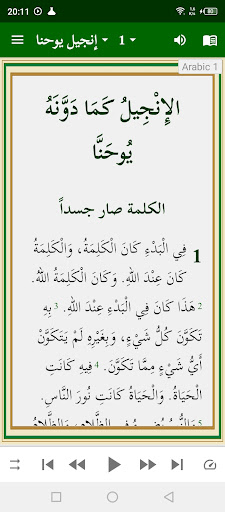 20:11
1 إنجيل يوحنا
Arabic 1
الإِنْجِيلُ كَمَا دَوَّنَهُ
يُوحَنَّا
الكلمة صار جسداً
1 فِي الْبَدْءِ كَانَ الْكَلِمَةُ، وَالْكَلِمَةُ
كَانَ عِنْدَ اللهِ. وَكَانَ الْكَلِمَةُ اللهُ.
2 هَذَا كَانَ فِي الْبَدْءِ عِنْدَ اللهِ. 3 بِهِ
تَكَوَّنَ كُلُّ شَيْءٍ، وَبِغَيْرِهِ لَمْ يَتَكَوَّنْ
أَيُّ شَيْءٍ مِمَّا تَكَوَّنَ. 4 فِيهِ كَانَتِ
الْحَيَاةُ. وَالْحَيَاةُ كَانَتِ نُورَ النَّاسِ.